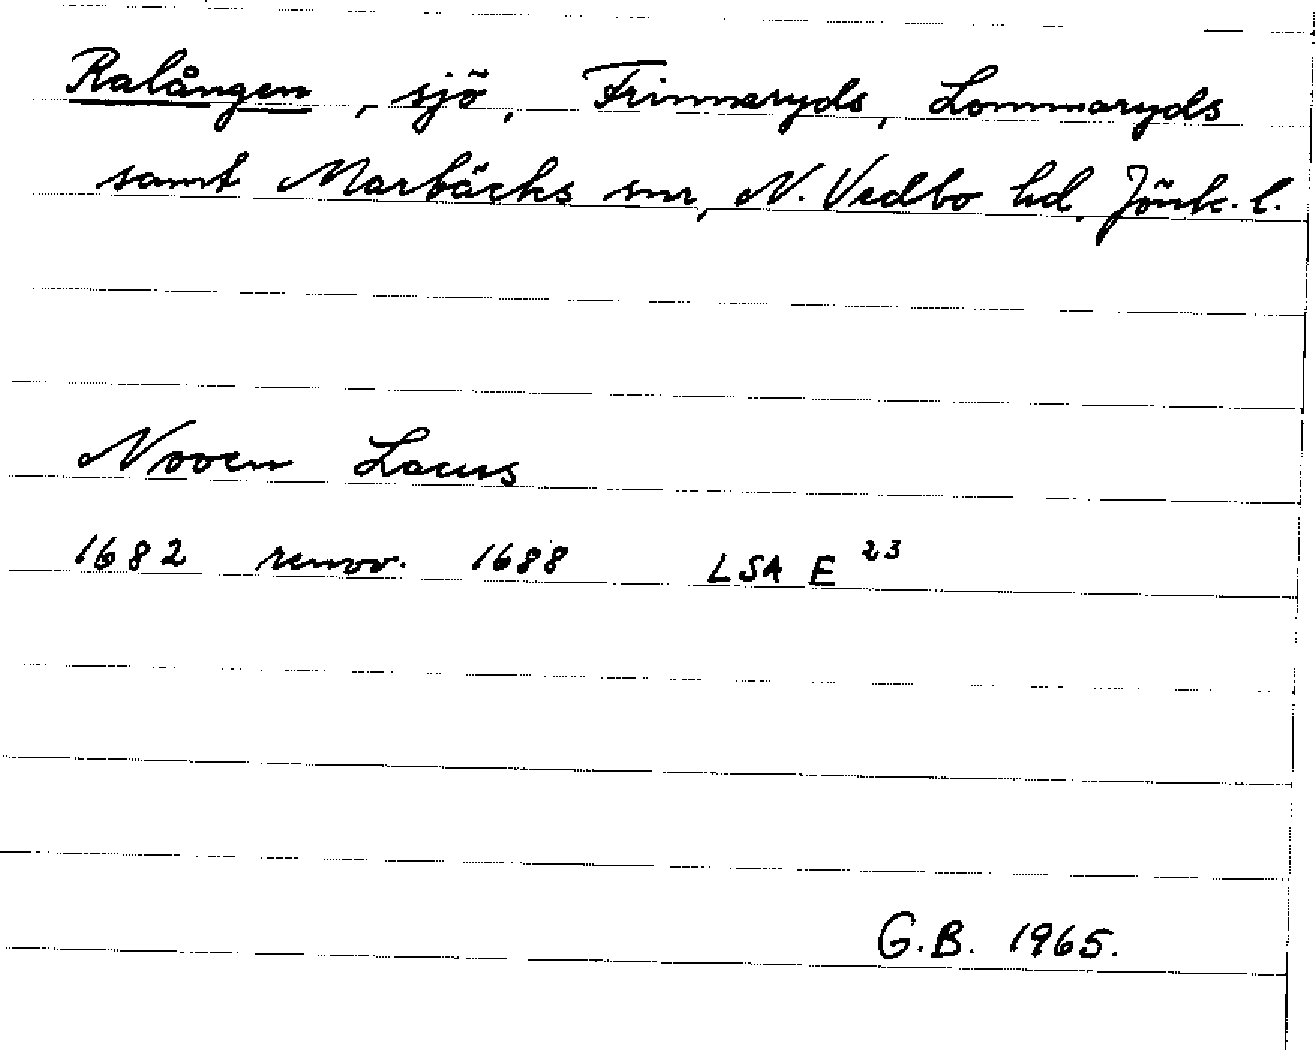 Ralången, sjö, Frinnaryds, Lommaryds
samt Marbäcks snr, N. Vedbo hd, Jönk. l.
Nooen Lacus
1682 renov. 1688 LSA E 23
G.B. 1965.